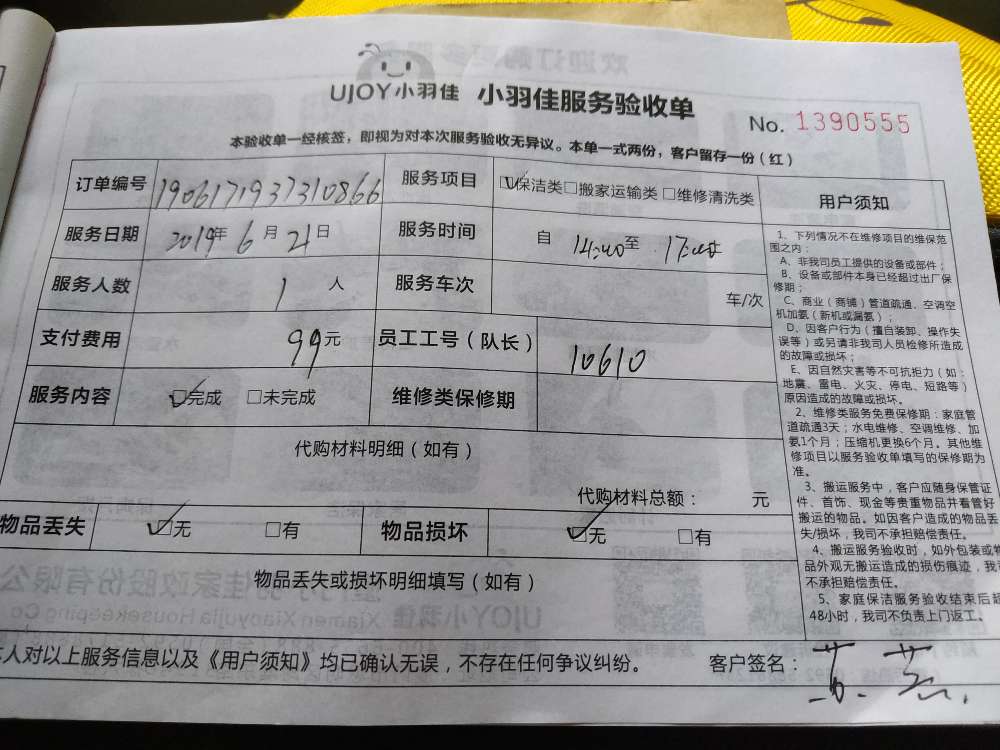 UJOY小羽佳 小羽佳服务验收单
No. 1390555
本验收单一经核签，即视为对本次服务验收无异议。本单一式两份，客户留存一份（红）
订单编号 1906171937310866 服务项目 ☑保洁类□搬家运输类□维修清洗类
服务日期 2019年6月21日 服务时间 自 14:40至 17:40
服务人数 1人 服务车次 车/次
支付费用 99元 员工工号（队长） 10610
服务内容 ☑完成 □未完成 维修类保修期
代购材料明细（如有）
代购材料总额： 元
物品丢失 ☑无 □有 物品损坏 ☑无 □有
物品丢失或损坏明细填写（如有）
人对以上服务信息以及《用户须知》均已确认无误，不存在任何争议纠纷。 客户签名：
用户须知
1、下列情况不在维修项目的维保范
围之内：
A、非我司员工提供的设备或部件；
B、设备或部件本身已经超过出厂保
修期；
C、商业（商铺）管道疏通、空调空
机加氨（新机或漏氨）；
D、因客户行为（擅自装卸、操作失
误等）或另请非我司人员检修所造成
的故障或损坏；
E、因自然灾害等不可抗拒力（如：
地震、雷电、火灾、停电、短路等）
原因造成的故障或损坏。
2、维修类服务免费保修期：家庭管
道疏通3天；水电维修、空调维修、加
氨1个月；压缩机更换6个月。其他维
修项目以服务验收单填写的保修期为
准。
3、搬运服务中，客户应随身保管证
件、首饰、现金等贵重物品并看管好
搬运的物品。如因客户造成的物品丢
失/损坏，我司不承担赔偿责任。
4、搬运服务验收时，如外包装或物
品外观无搬运造成的损伤痕迹，我司
不承担赔偿责任。
5、家庭保洁服务验收结束后超
48小时，我司不负责上门返工。